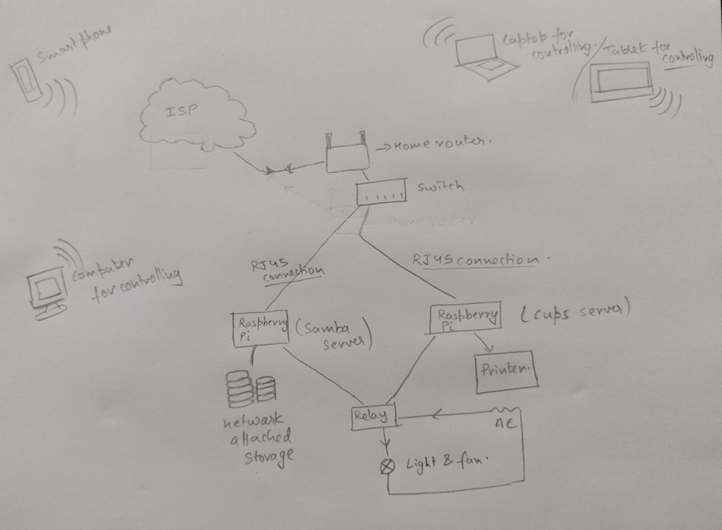 Smartphone
Laptop for
controlling
/Tablet for
controlling
ISP
→Home router.
Switch
RJ45
connection
RJ45 connection.
Computer
for controlling
Raspberry
Pi
(Samba
server)
Raspberry
Pi
(cups server)
Printer.
network
attached
storage
Relay
AC
Light & fan.